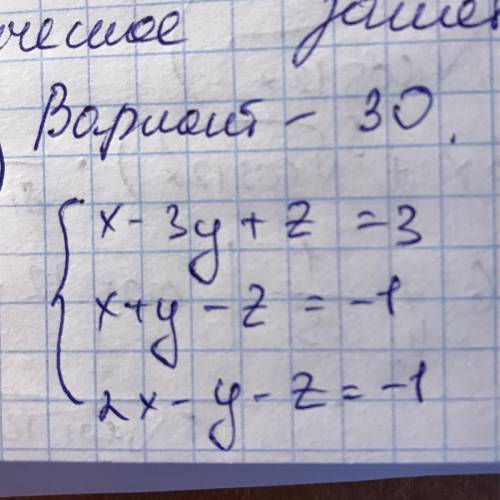 ческое
Вариант - 30.
x - 3y + z = 3
x + y - z = -1
2x - y - z = -1